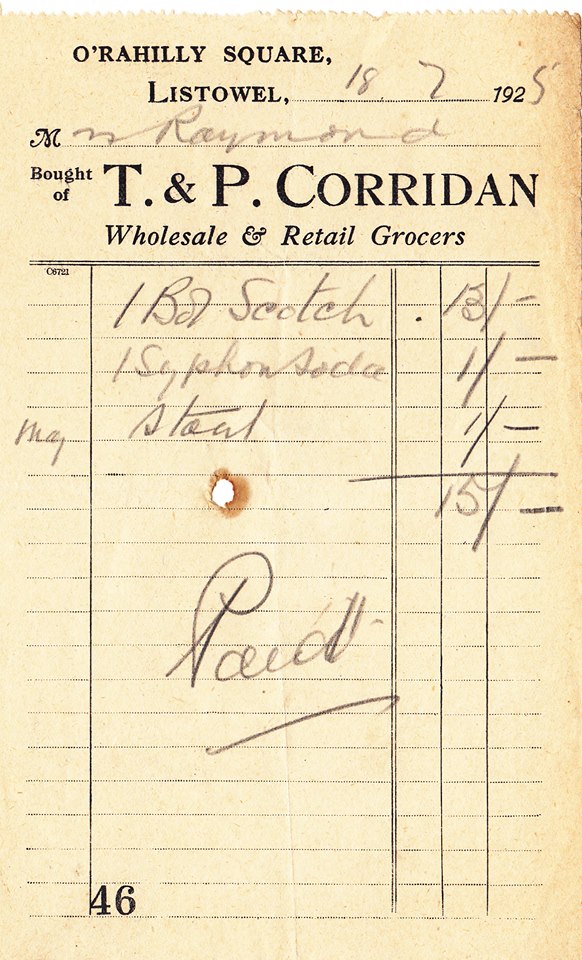 O'RAHILLY SQUARE,
LISTOWEL, 18 7 1925
Mr Raymond
Bought of T. & P. CORRIDAN
Wholesale & Retail Grocers
C6721
1 Bot Scotch 13/-
1 Syphon Soda 1/-
Stout 1/-
15/-
Paid
46